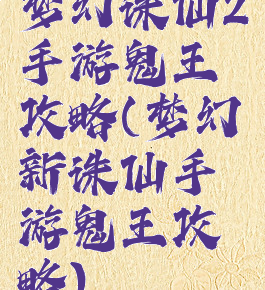 梦幻诛仙2
手游鬼王
攻略(梦幻
新诛仙手
游鬼王攻
略)